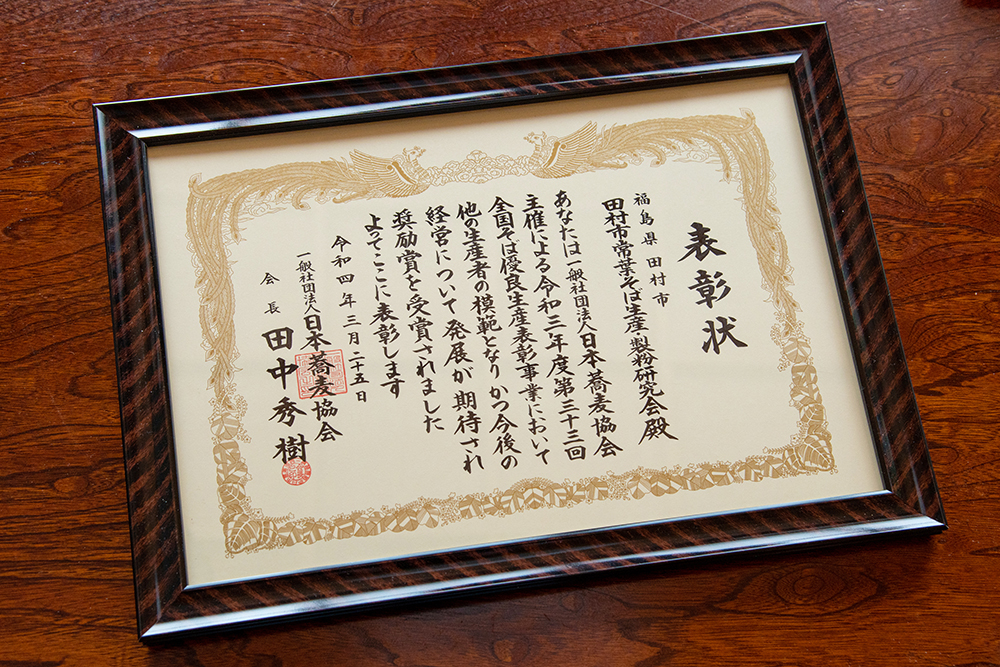 表彰状
福島県田村市
田村市常葉そば生産・製粉研究会殿
あなたは一般社団法人日本蕎麦協会
主催による令和三年度第三十三回
全国そば優良生産表彰事業において
他の生産者の模範となりかつ今後の
経営について発展が期待され
奨励賞を受賞されました
よってここに表彰します
令和四年三月二十五日
一般社団法人日本蕎麦協会
会長 田中秀樹